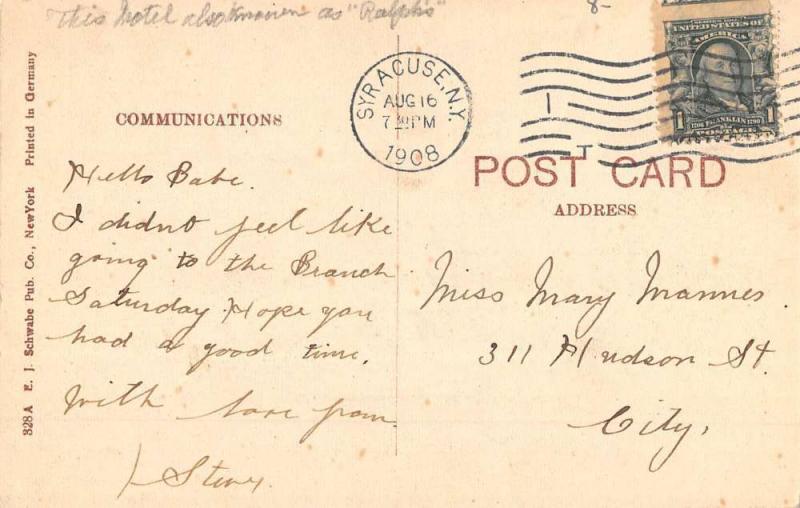 This Hotel also known as "Ralph's"
8-
328A E. J. Schwabe Pub. Co., New York Printed in Germany
COMMUNICATIONS
SYRACUSE, N.Y.
AUG 16
7 PM
1908
1
UNITED STATES OF
AMERICA
1706 FRANKLIN 1790
1 POSTAGE 1
POST CARD
ADDRESS
Hello Babe.
I didnt feel like
going to the Branch
Saturday Hope you
had a good time.
With love from
Miss Mary Mannes
311 Hudson St.
City,